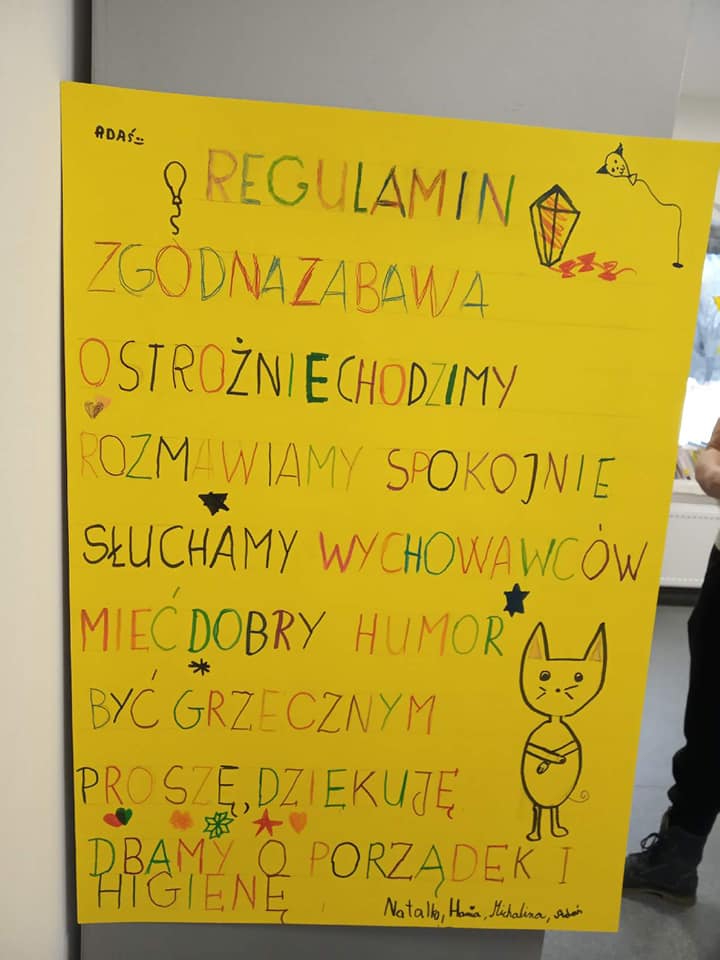 ADAŚ
REGULAMIN
ZGODNA ZABAWA
OSTROŻNIE CHODZIMY
ROZMAWIAMY SPOKOJNIE
SŁUCHAMY WYCHOWAWCÓW
MIEĆ DOBRY HUMOR
BYĆ GRZECZNYM
PROSZĘ, DZIEKUJĘ
DBAMY O PORZĄDEK I
HIGIENĘ
Natalka, Hania, Michalina,